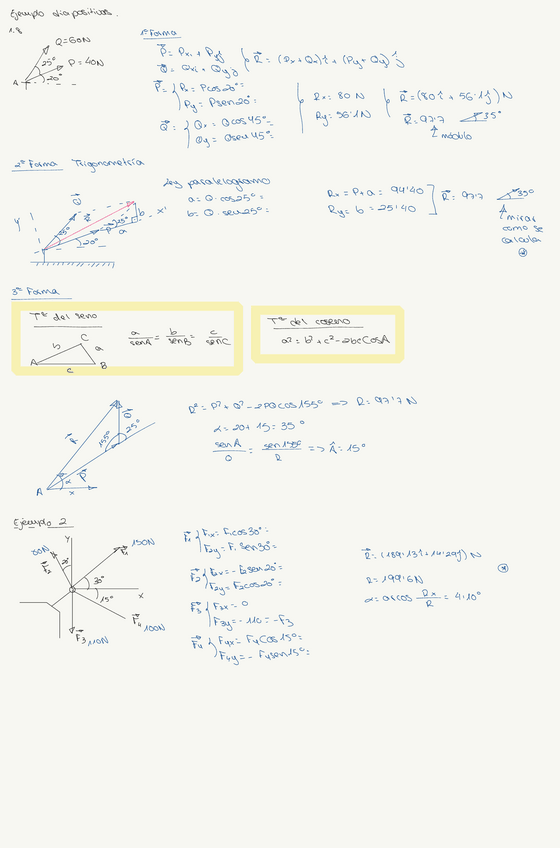 Ejemplo diapositivas.
1.8
Q=60N
25°
P=40N
20°
A
1ª Forma
P⃗ = Pxi + Pyj
Q⃗ = Qxi + Qyj
R⃗ = (Px+Qx)î + (Py+Qy)ĵ
P⃗ = { Px = Pcos20°=
Py = Psen20°=
Q⃗ = { Qx = Qcos45°=
Qy = Qsen45°=
Rx = 80 N
Ry = 56'1N
R⃗ = (80î + 56'1ĵ) N
R⃗ = 97'7 35°
módulo
2ª Forma Trigonometría
Ley paralelogramo
a = Q · cos25°=
b = Q · sen25°=
Rx = P+a = 94'40
Ry = b = 25'40
R⃗ = 97'7 35°
mirar
como se
calcula
y'
Q⃗
R⃗
25°
20°
P⃗
25°
a
b
x'
3ª Forma
Tª del seno
a/senA = b/senB = c/senC
A
b
C
a
c
B
Tª del coseno
a² = b² + c² - 2bcCosA
R² = P² + Q² - 2PQcos155° => R = 97'7 N
α = 20 + 15 = 35°
senA/Q = sen155°/R => Â = 15°
R⃗
Q⃗
155°
25°
α
P⃗
A
x
Ejemplo 2
y
F⃗2
20°
F⃗1
150N
30°
x
15°
F⃗4
100N
F⃗3
110N
F⃗1 { F1x = F1cos30°=
F1 sen30°=
F⃗2 { F2x = -F2sen20°=
F2y = F2cos20°=
F⃗3 { F3x = 0
F3y = -110 = -F3
F⃗4 { F4x = F4Cos15°=
F4y = -F4sen15°=
R⃗ = (199'13î + 14'29ĵ) N
R = 199'6N
α = arcos Rx/R = 4'10°